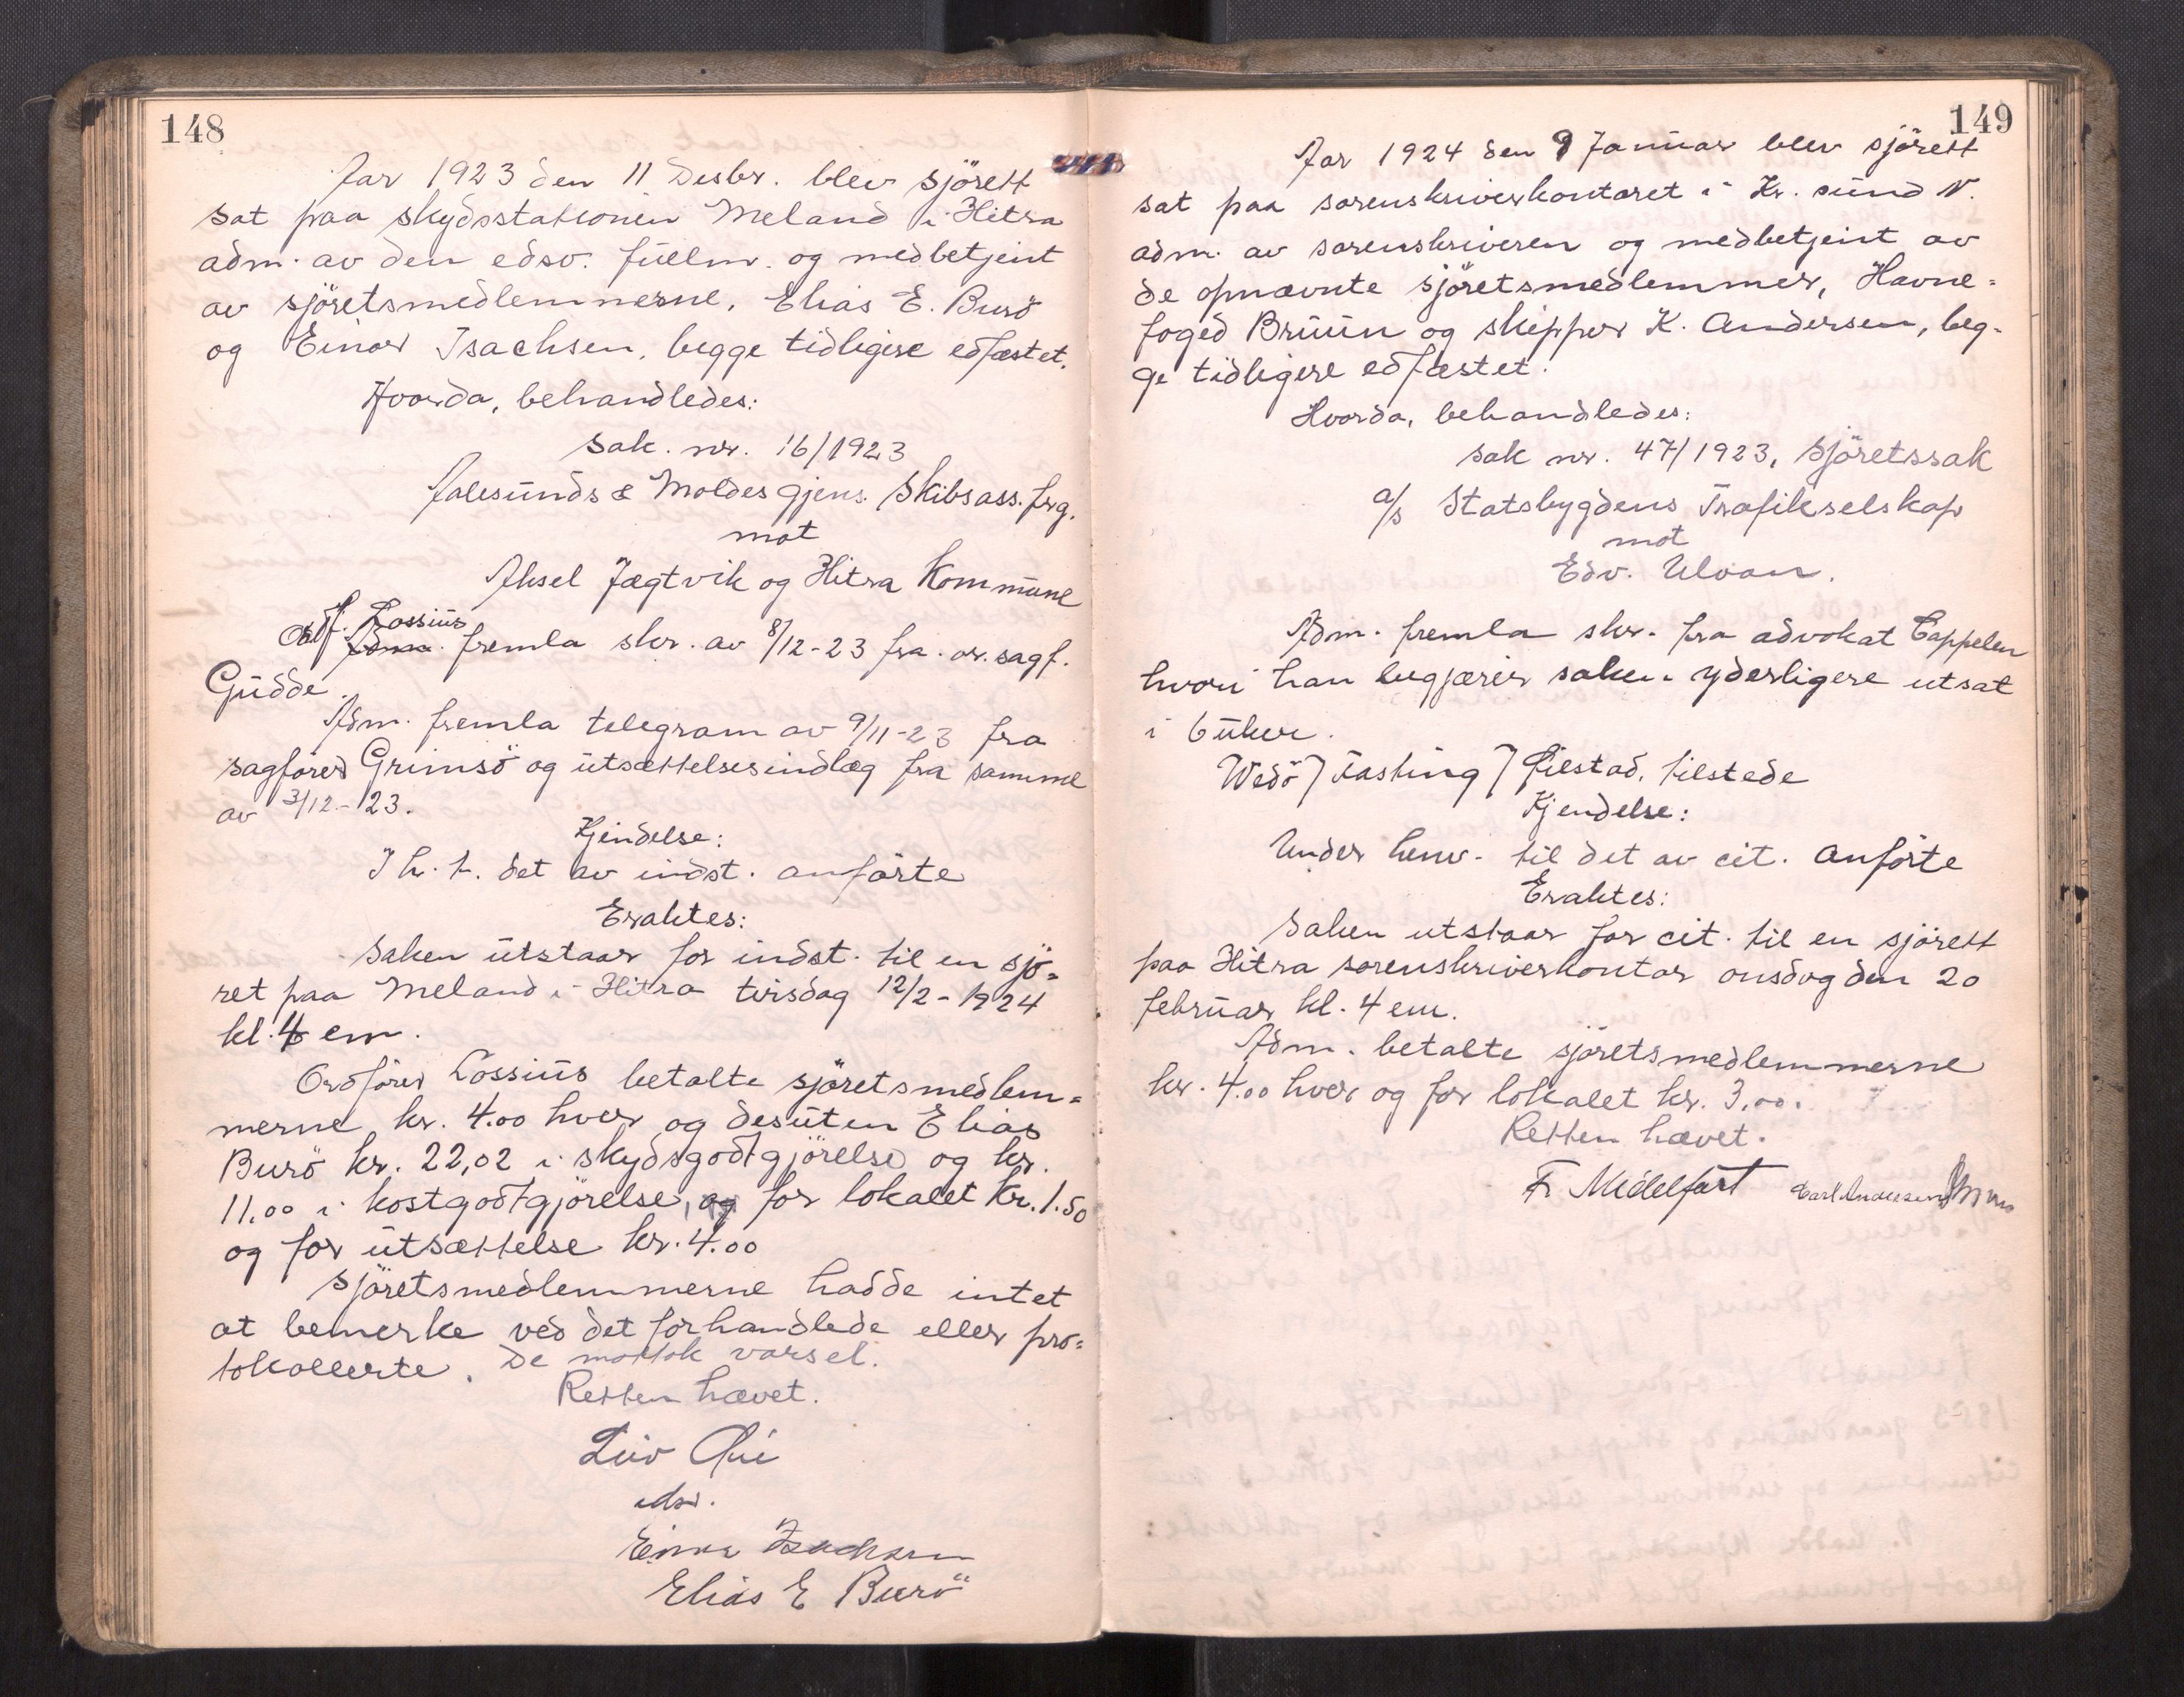 148
Aar 1923 den 11 Desbr. blev sjörett
sat paa skydsstationen Meland i Hitra
adm. av den edsv. fuelm. og medbetjent
av sjöretsmedlemmerne, Elias E. Burö
og Einar Isachsen, begge tidligere edfæstet.
Hvorda, behandledes:
Sak. nr. 16/1923
Aalesunds & Moldes gjens. Skibsass. frg.
mot
Aksel Jægtvik og Hitra Kommune
Ordf. Lossius
Adm. fremla skr. av 8/12-23 fra o.r.sagf.
Gudde.
Adm. fremla telegram av 9/11-23 fra
sagförer Grimsö og utsættelsesindlæg fra samme
av 3/12-23.
Kjendelse:
I h. t. det av indst. anförte
Eraktes:
Saken utstaar for indst. til en sjö=
ret paa Meland i Hitra tirsdag 12/2-1924
kl. 4 em.
Ordförer Lossius betalte sjöretsmedlem=
merne kr. 4.00 hver og desuten Elias
Burö kr. 22,02 i skydsgodtgjörelse og kr.
11.00 i kostgodtgjörelse, og for lokalet kr. 1.50
og for utsættelse kr. 4.00
Sjöretsmedlemmerne hadde intet
at bemerke ved det forhandlede eller pro=
tokollerte. De mottok varsel.
Retten hævet.
Leiv
edsv.
Einar Isachsen
Elias E Burö
149
Aar 1924 den 9 Januar blev sjörett
sat paa sorenskriverkontoret i Kr. sund N.
adm. av sorenskriveren og medbetjent av
de opnævnte sjöretsmedlemmer, Havne=
foged Bruun og skipper K. Andersen, beg-
ge tidligere edfæstet.
Hvorda, behandledes:
Sak nr. 47/1923, Sjöretssak
a/s Statsbygdens Trafikselskap
mot
Edv. Ulvan.
Adm. fremla skr. fra advokat Cappelen
hvori han begjærer saken yderligere utsat
i 6 uker.
Wedö) Fasting) Filestad, tilstede
Kjendelse:
Under henv. til det av cit. anförte
Eraktes:
Saken utstaar for cit. til en sjörett
paa Hitra sorenskriverkontor onsdag den 20
februar kl. 4 em.
Adm. betalte sjöretsmedlemmerne
kr. 4.00 hver og for lokalet kr. 3,00.
Retten hævet.
Fr Midelfart Carl Andersen Bruun